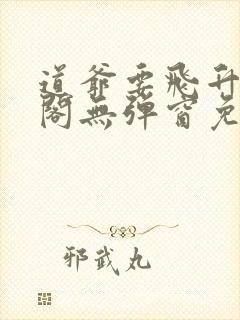 道爺要飛升
閣無彈窗免
邪武丸